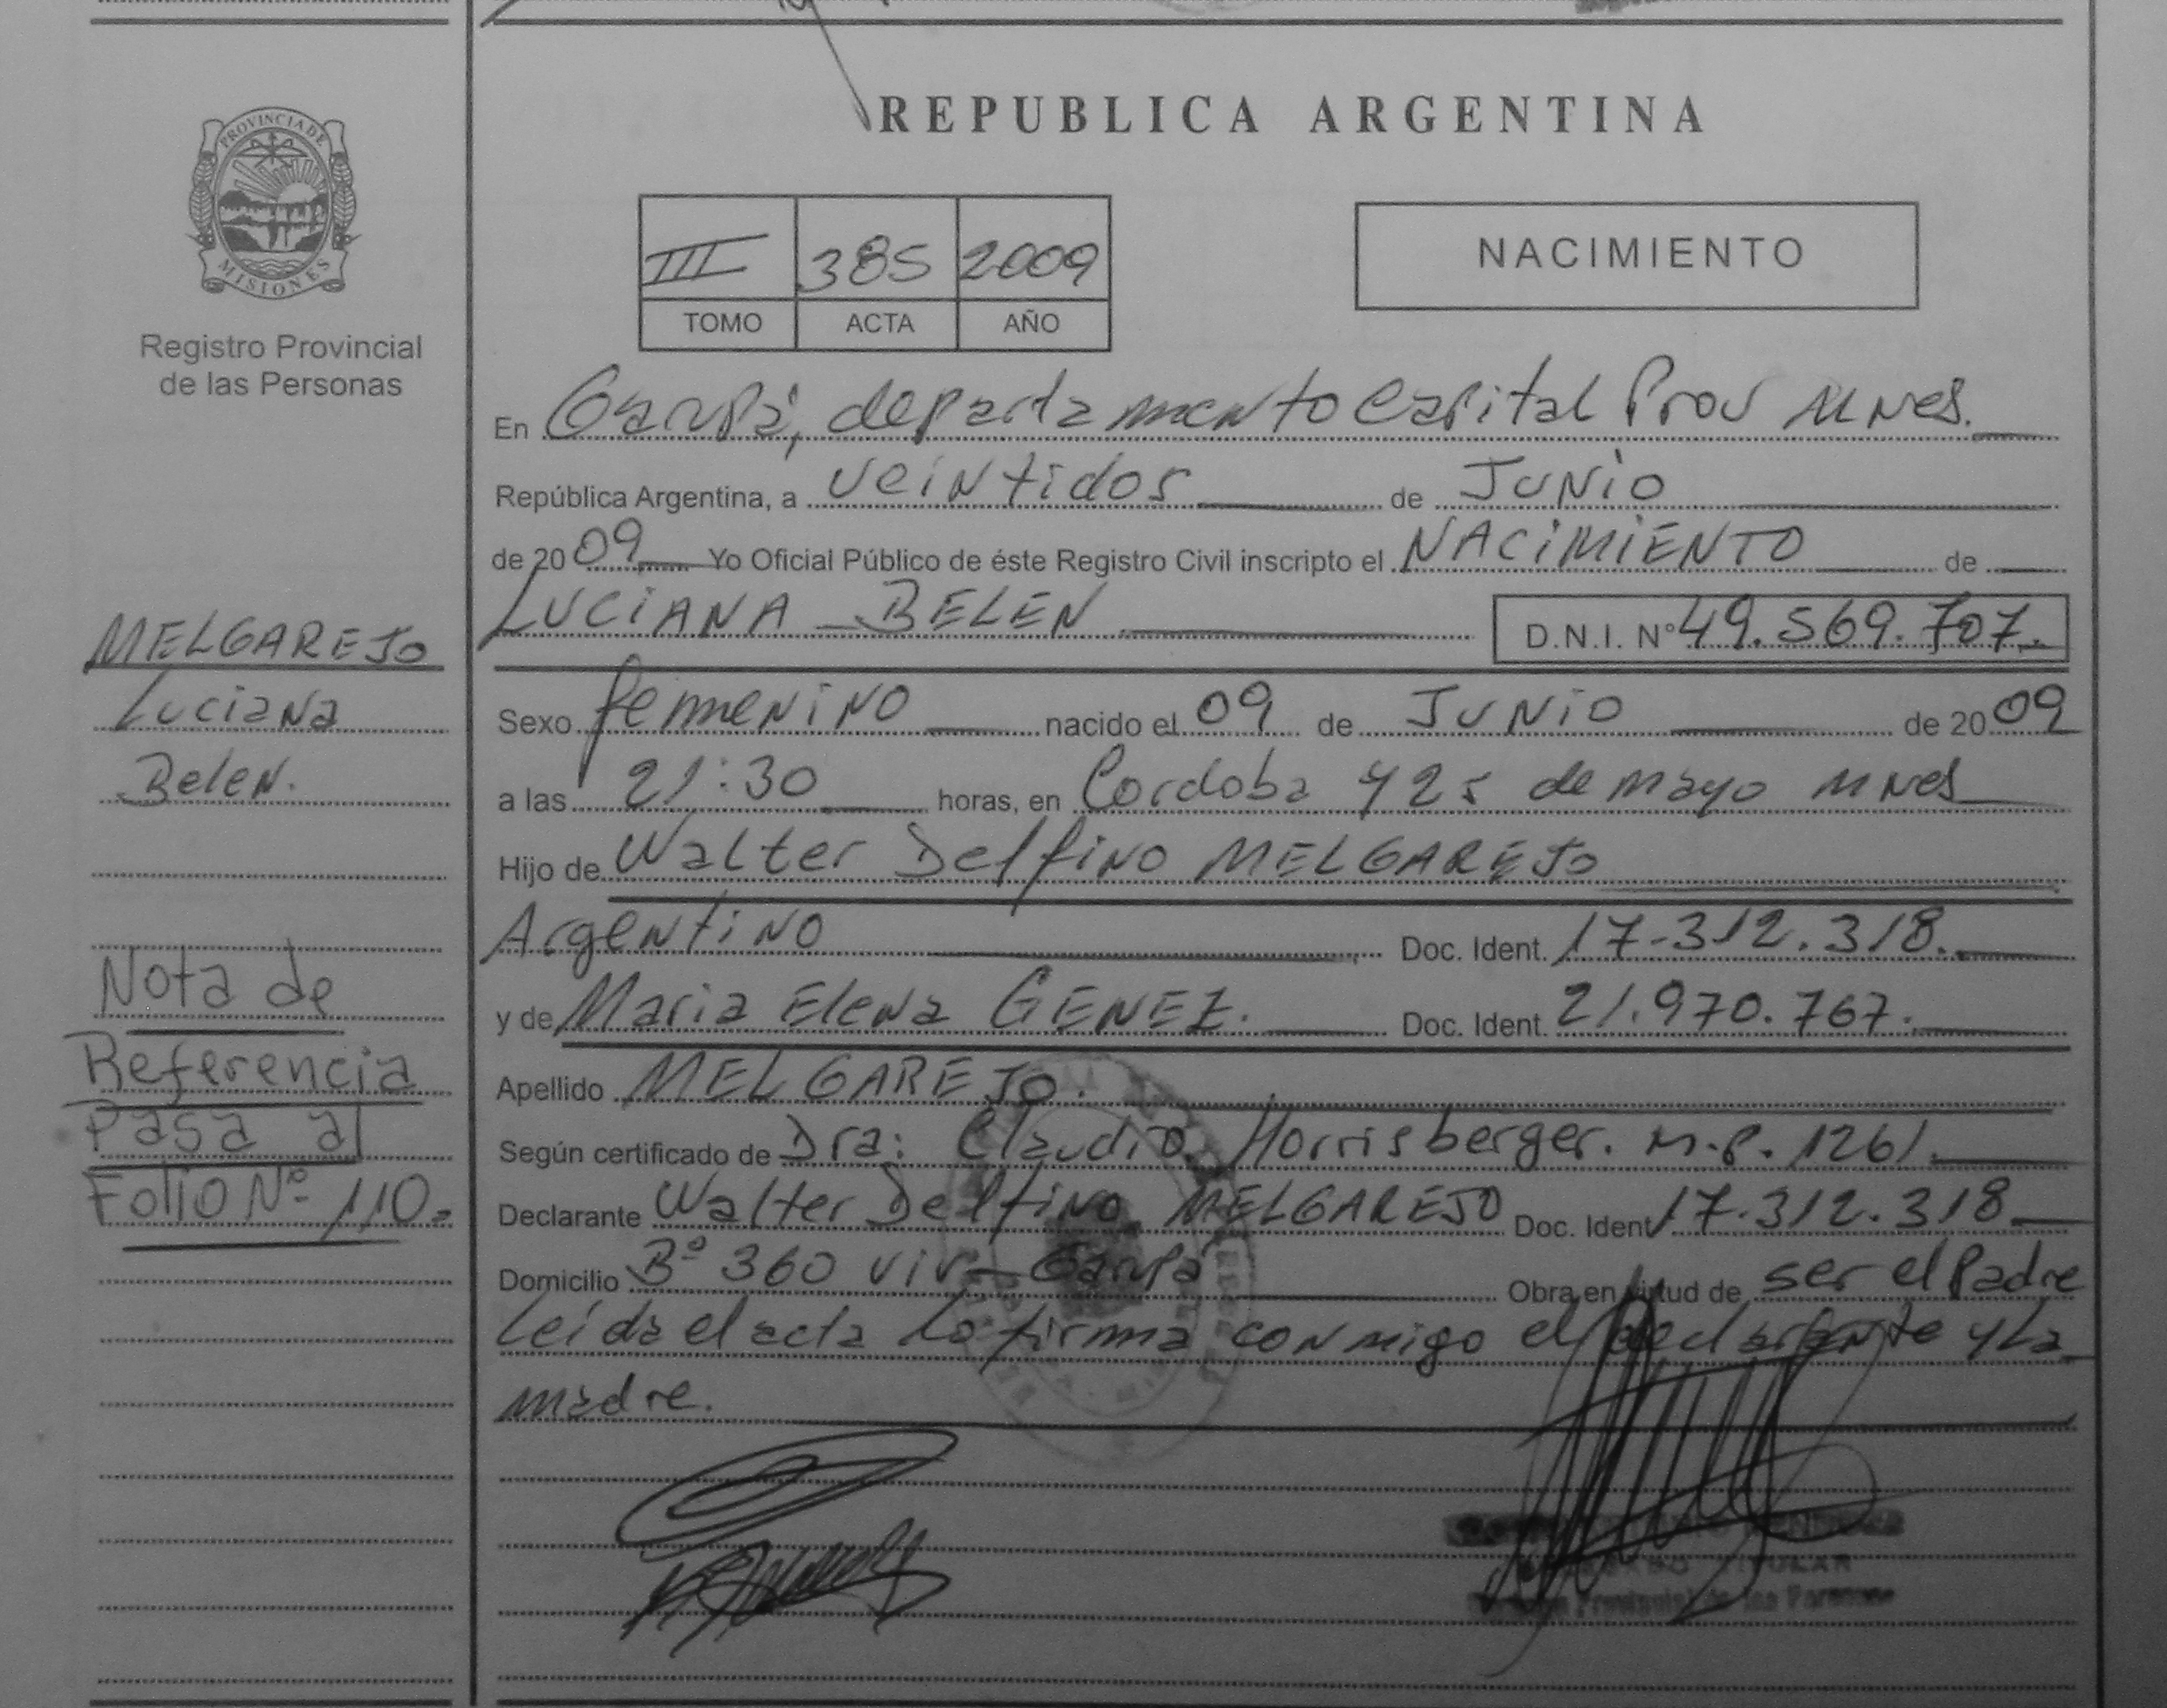 PROVINCIA DE
MISIONES
Registro Provincial
de las Personas
MELGAREJO
Luciana
Belen.
Nota de
Referencia
Pasa al
Folio Nº 110.
REPUBLICA ARGENTINA
III 385 2009
TOMO ACTA AÑO
NACIMIENTO
En Garupá, departamento Capital Prov Mnes.
República Argentina, a veintidos de Junio
de 2009 Yo Oficial Público de éste Registro Civil inscripto el NACIMIENTO de
LUCIANA BELEN D.N.I. Nº 49.569.707.
Sexo femenino nacido el 09 de Junio de 2009
a las 21:30 horas, en Cordoba y 25 de mayo Mnes
Hijo de Walter Delfino MELGAREJO
Argentino Doc. Ident. 17.312.318.
y de Maria Elena GENEZ. Doc. Ident. 21.970.767.
Apellido MELGAREJO.
Según certificado de Dra: Claudia Horrisberger. M.P. 1261.
Declarante Walter Delfino MELGAREJO Doc. Ident 17.312.318
Domicilio Bº 360 viv - Garupá Obra en virtud de ser el Padre
Leída el acta la firma conmigo el declarante y la
madre.
TITULAR
Provincial de las Personas